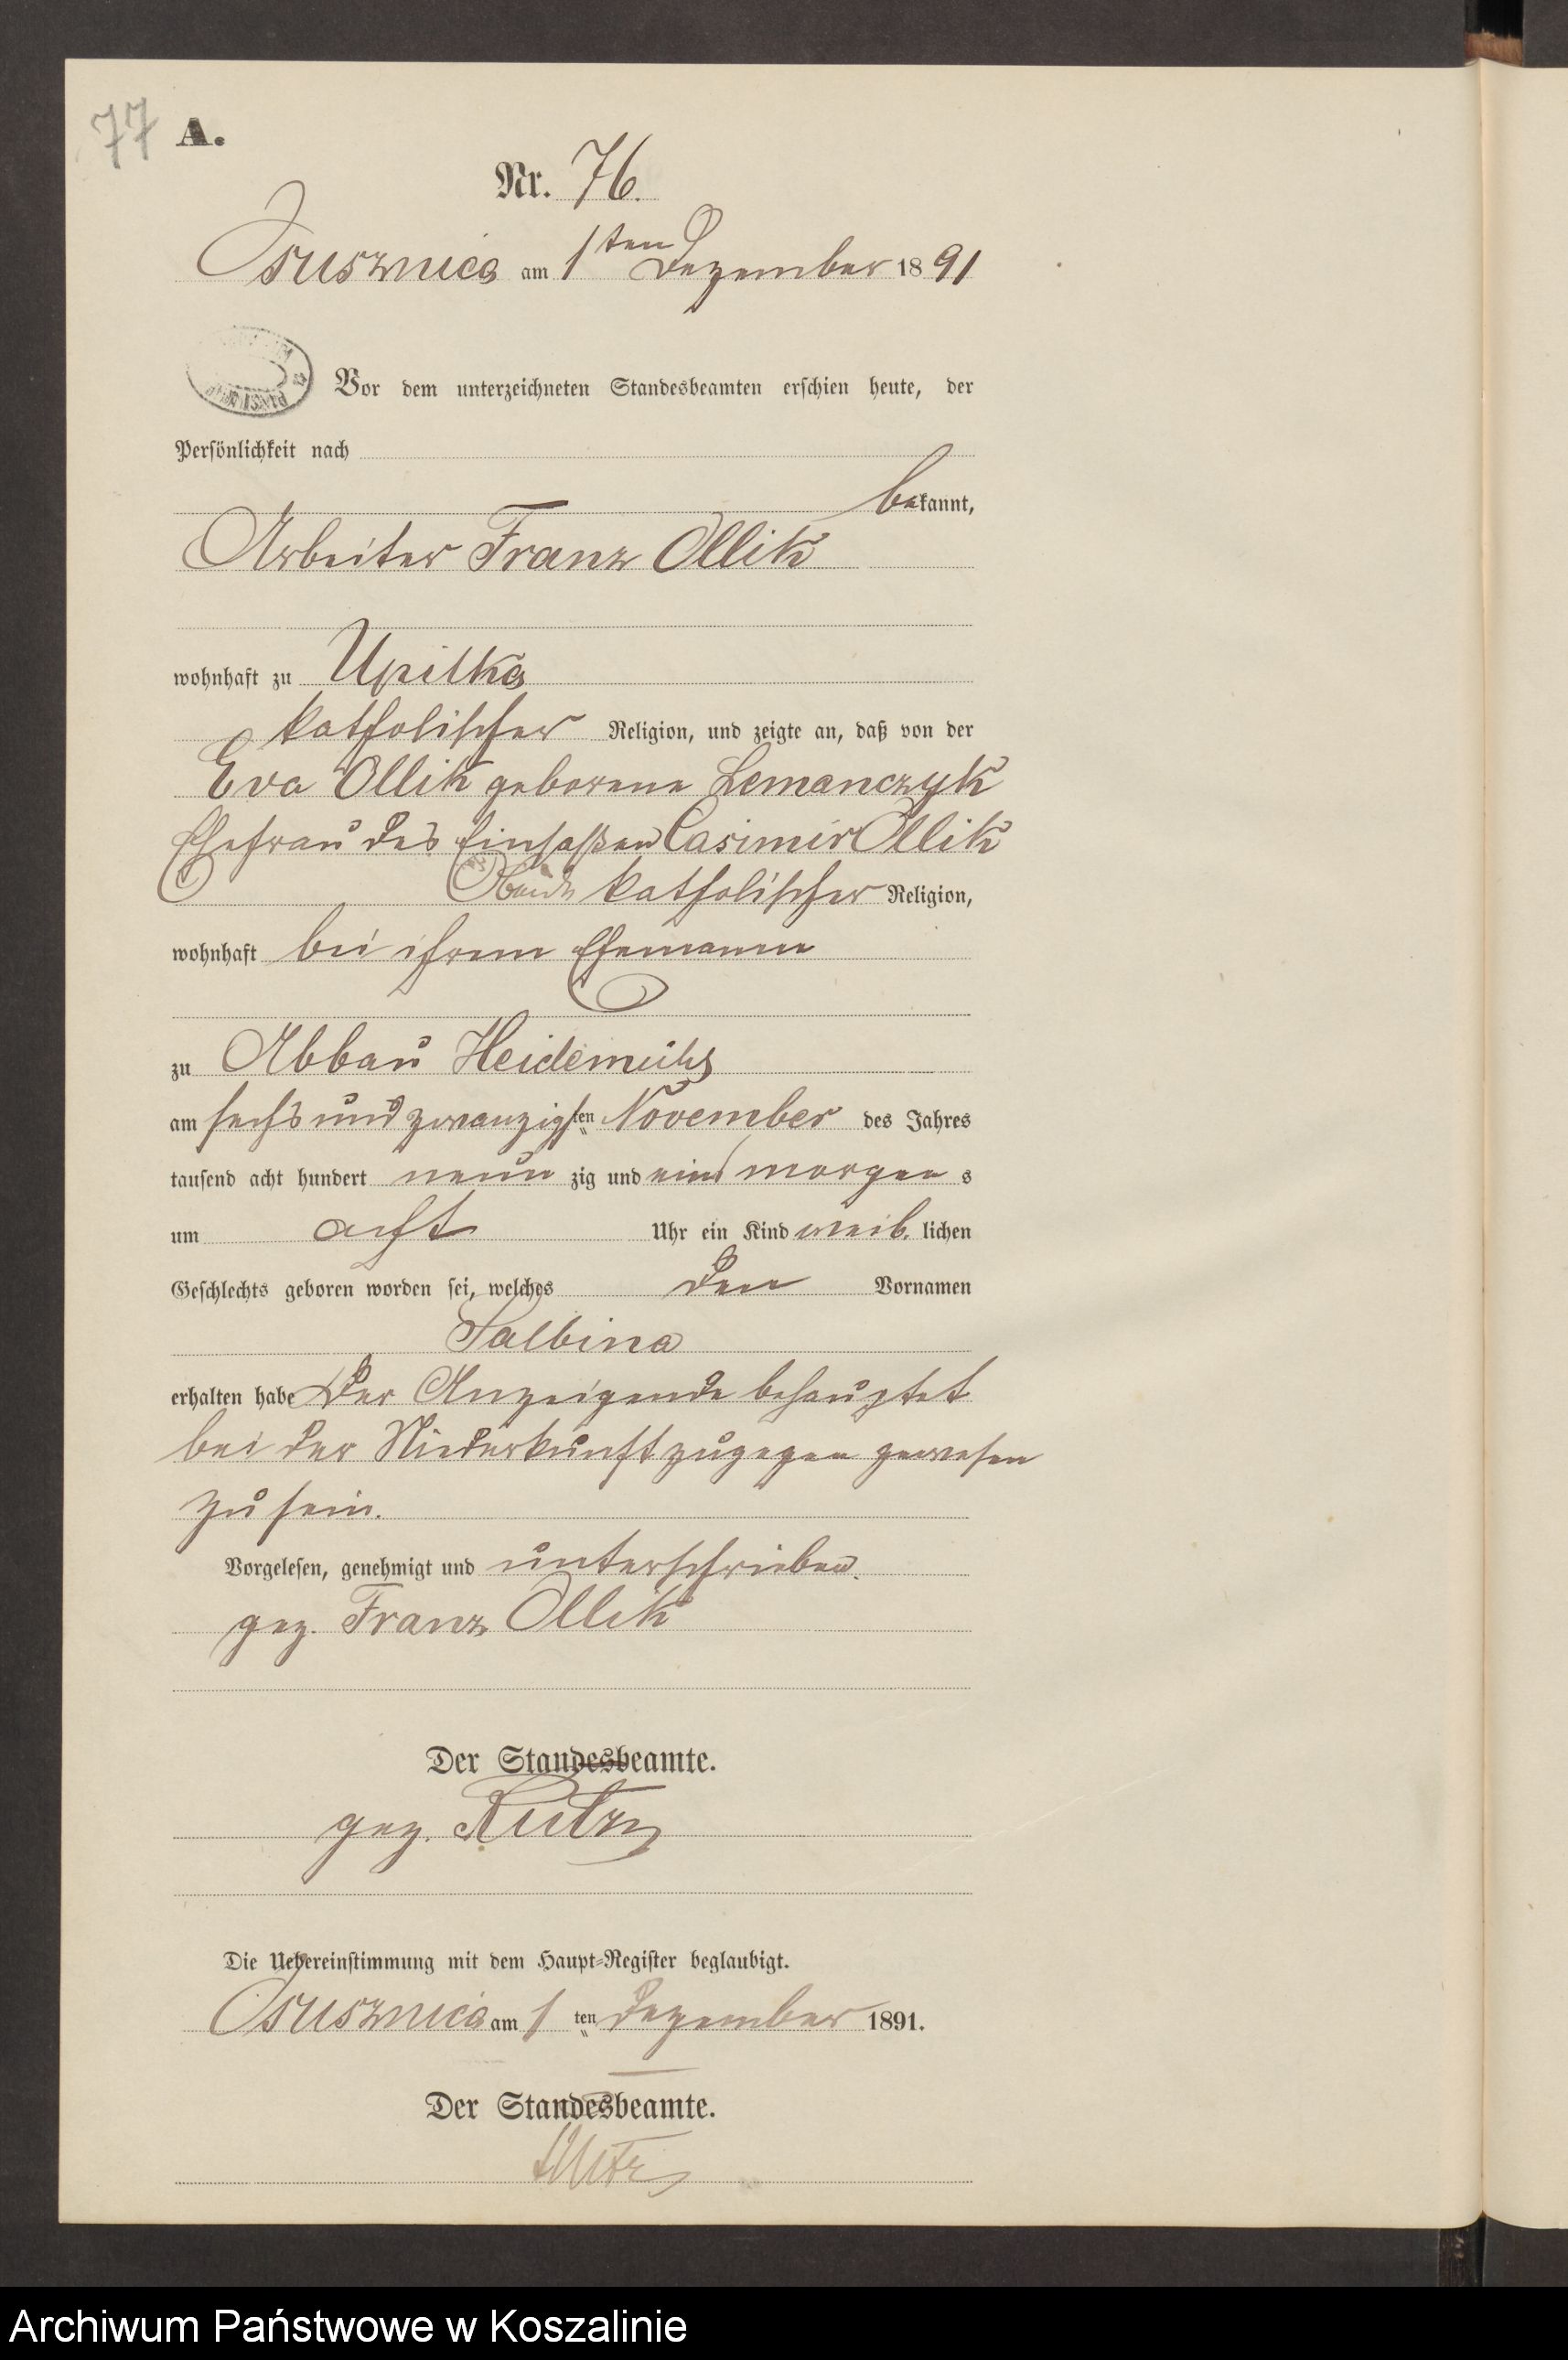 77 A.
Nr. 76.
Osusznica am 1ten Dezember 1891
Vor dem unterzeichneten Standesbeamten erschien heute, der
Persönlichkeit nach
bekannt,
Arbeiter Franz Ollik
wohnhaft zu Upilka
katholischer Religion, und zeigte an, daß von der
Eva Ollik geborene Lemanczyk
Ehefrau des Einsaßen Casimir Ollik
Beide katholischer Religion,
wohnhaft bei ihrem Ehemanne
zu Abbau Heidemühl
am sechs und zwanzigsten November des Jahres
tausend acht hundert neun zig und eins morgens
um acht Uhr ein Kind weib. lichen
Geschlechts geboren worden sei, welches den Vornamen
Salbina
erhalten habe Der Anzeigende behauptet
bei der Niederkunft zugegen gewesen
zu sein.
Vorgelesen, genehmigt und unterschrieben.
gez. Franz Ollik
Der Standesbeamte.
gez. Kutz
Die Uebereinstimmung mit dem Haupt-Register beglaubigt.
Osusznica am 1 ten Dezember 1891.
Der Standesbeamte.
Kutz
Archiwum Państwowe w Koszalinie